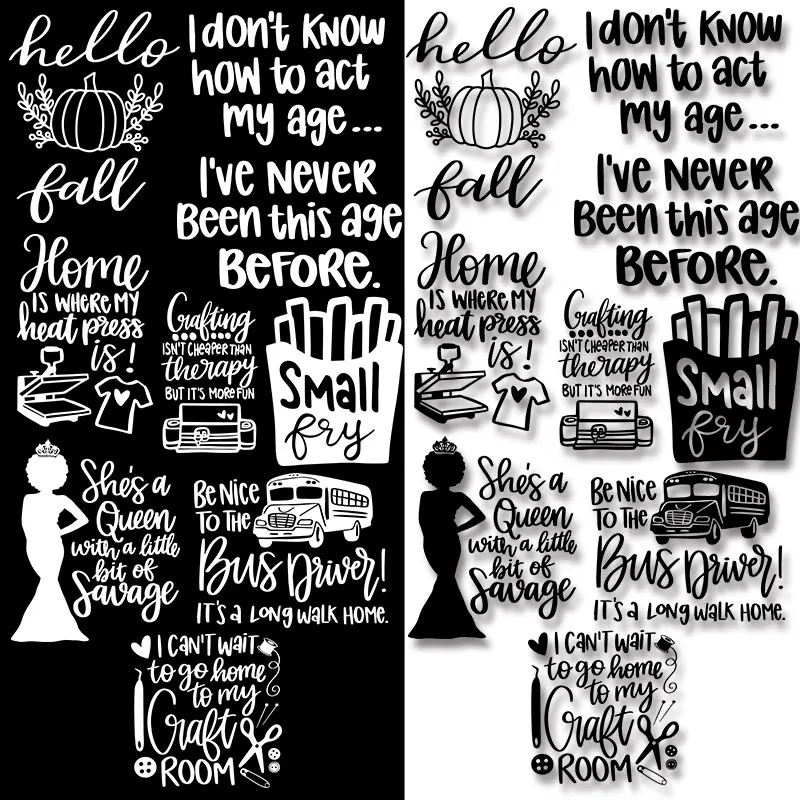 hello
fall
I don't know
how to act
my age...
I've never
Been this age
Before.
Home
is where my
heat press
is!
Crafting
isn't cheaper than
therapy
but it's more fun
Small
fry
She's a
Queen
with a little
bit of
Savage
Be Nice
to the
Bus Driver!
it's a long walk home.
I can't wait
to go home
to my
Craft
ROOM
hello
fall
I don't know
how to act
my age...
I've never
Been this age
Before.
Home
is where my
heat press
is!
Crafting
isn't cheaper than
therapy
but it's more fun
Small
fry
She's a
Queen
with a little
bit of
Savage
Be Nice
to the
Bus Driver!
it's a long walk home.
I can't wait
to go home
to my
Craft
ROOM